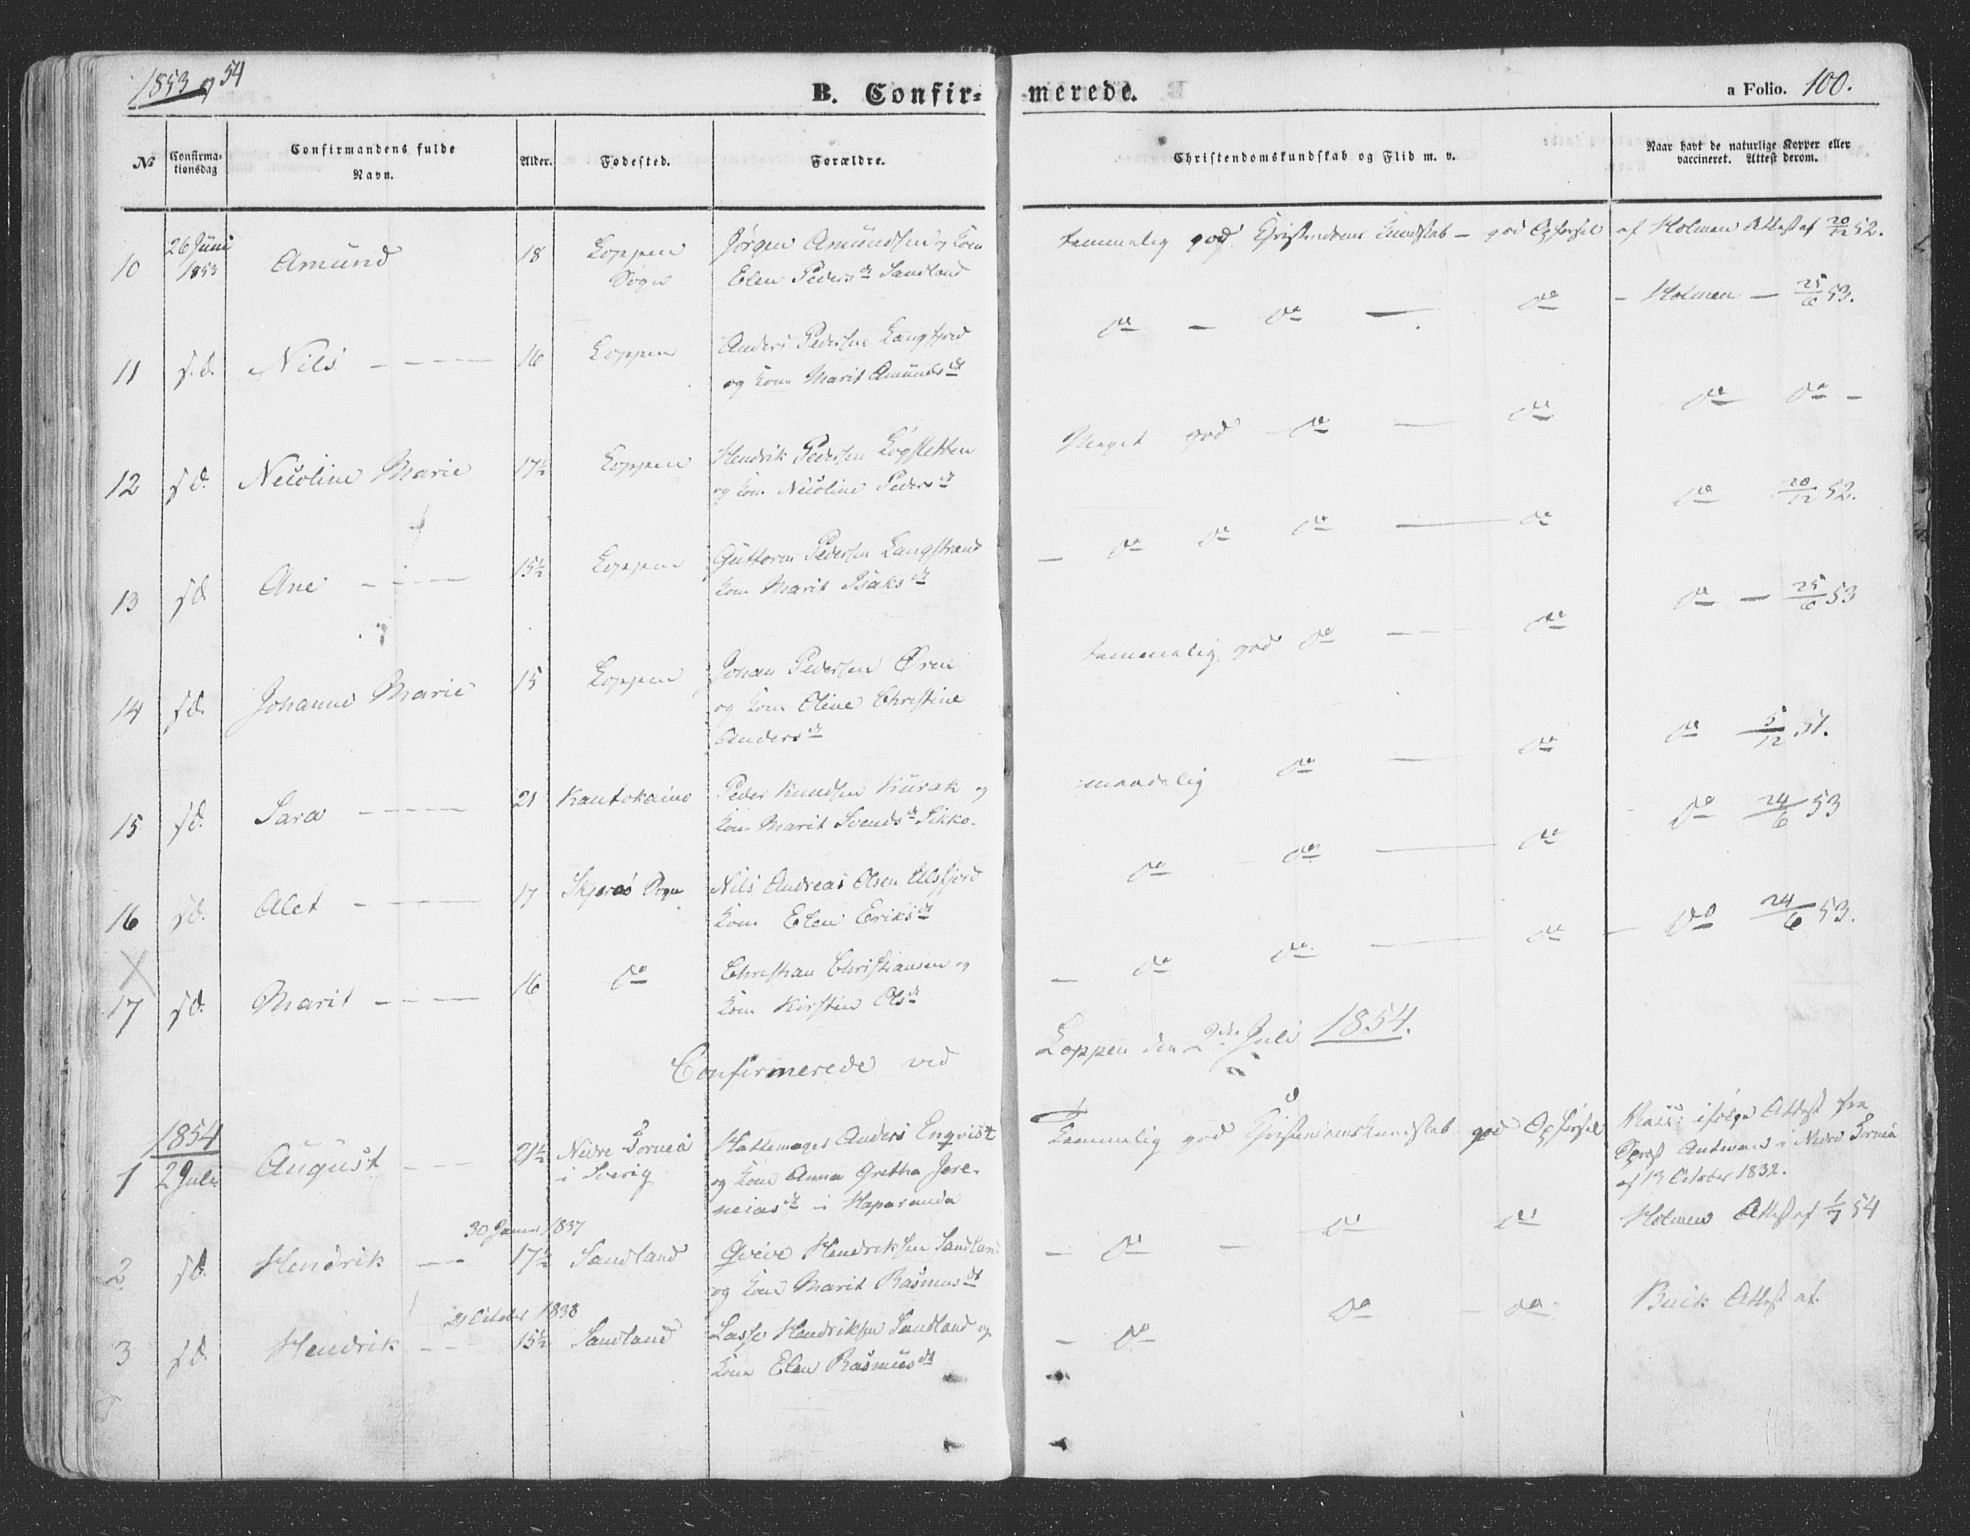 1853 og 54
B. Confir- merede. a Folio. 100.
No Confirma-tionsdag Confirmandens fulde Navn. Alder. Fødested. Forældre. Christendomskundskab og Flid m. v. Naar havt de naturlige Kopper eller vaccineret. Attest derom.
10 26 Juni 1853 Amund 18 Loppen Sogn Jørgen Amundsen og Kone Elen Pedersdt Sandland temmelig god Christendoms Kundskab – god Opførsel af Holmen Attest af 20/12 52.
11 s.d. Nils – – – 16 Loppen Anders Pedersen Langfjord og Kone Marit Amundsdt do – do – do – Holmen – 25/6 53.
12 s.d. Nicoline Marie 17½ Loppen Hendrik Pedersen Løgsletten og Kone Nicoline Pedersdt Meget god do – do do do –
13 s.d. Ane – – – 15½ Loppen Guttorm Pedersen Langstrand Kone Marit Isaksdt – do do do – do do 20/12 52.
14 s.d. Johanne Marie 15 Loppen Johan Pedersen Øren og Kone Oline Christine Andersdt temmelig god do – do do – 25/6 53
15 s.d. Sara – – – 21 Kautokaino Peder Knudsen Kurak og Kone Marit Svendsdt Sikko. maadelig do – do do 5/12 51.
16 s.d. Alet – – – 17 Skjervø Sogn Nils Andreas Olsen Alsfjord Kone Elen Eriksdt do do – do do 24/6 53
17 s.d. Marit – – – 16 do Christian Christiansen og Kone Kirsten Olsdt – do do – do – do 24/6 53.
Confirmerede ved Loppen den 2den Juli 1854.
1854
1 2 Juli August – – 21½ Nedre Torneå i Sverig Hattemager Anders Enqvist og Kone Anna Gretha Jere-meiasdt i Haparanda temmelig god Christendomskundskab god Opførsel Vacc: ifølge Attest fra Præst Antman i Nedre Torneå af 13 October 1832.
30 Januar 1837
2 s.d. Hendrik – – 17½ Sandland Greive Hendriksen Sandland og Kone Marit Rasmusdt – do – do do Holmen Attest af 1/7 54
21 October 1838
3 s.d. Hendrik – – 15½ Sandland Lasse Hendriksen Sandland og Kone Elen Rasmusdt – do do – do Buck Attest af